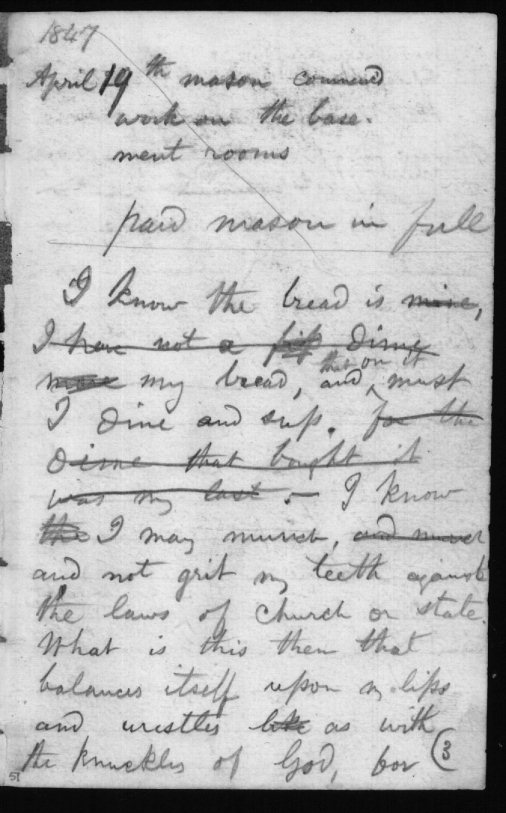 1847
April 19th mason commenced
work on the base-
ment rooms
paid mason in full
I know the bread is mine,
I have not a dime
my bread, and that on it must
I dine and sup. for the
dime that bought it
was my last. — I know
the I may munch, and munch
and not grit my teeth against
the laws of church or state.
What is this then that
balances itself upon my lips
and wrestles like as with
the knuckles of God, for
3
51